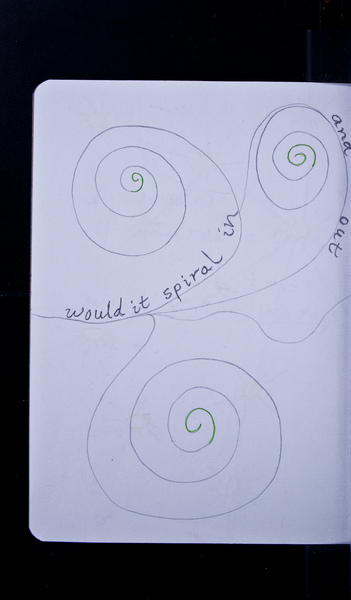 would it spiral in
and out